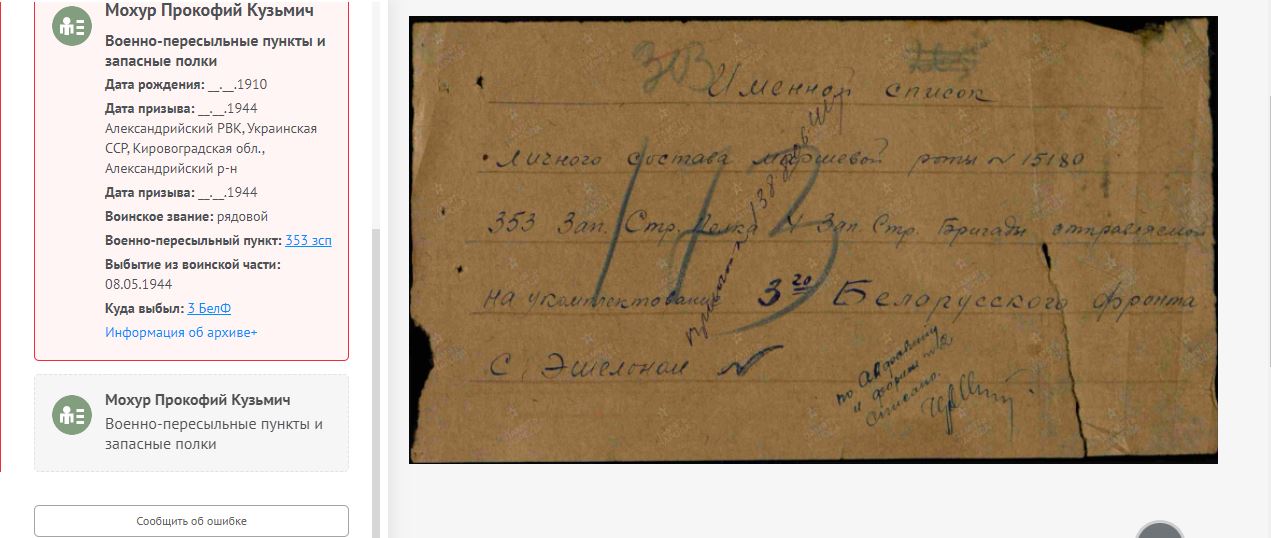 Мохур Прокофий Кузьмич
Военно-пересыльные пункты и
запасные полки
Дата рождения: __.__.1910
Дата призыва: __.__.1944
Александрийский РВК, Украинская
ССР, Кировоградская обл.,
Александрийский р-н
Дата призыва: __.__.1944
Воинское звание: рядовой
Военно-пересыльный пункт: 353 зсп
Выбытие из воинской части:
08.05.1944
Куда выбыл: 3 БелФ
Информация об архиве+
Мохур Прокофий Кузьмич
Военно-пересыльные пункты и
запасные полки
Сообщить об ошибке
303
Именной список
Личного состава маршевой роты № 15180
353 Зап. Стр. Полка 4 Зап Стр. Бригады отправляемой
на укомплектование 3го Белорусского фронта
С Эшелоном №
113
138